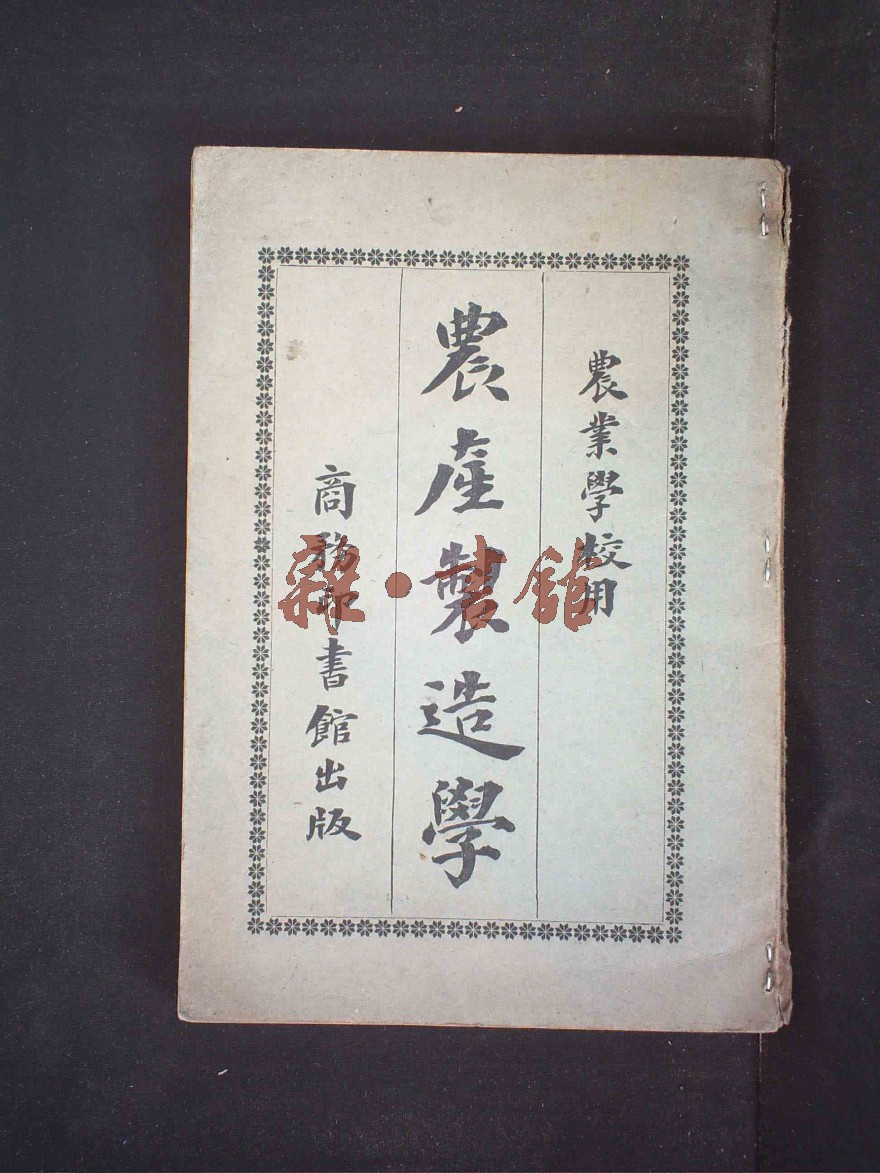 農業學校用
農產製造學
商務印書館出版
雜·書館